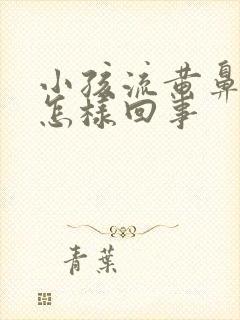 小孩流黄鼻
怎样回事
青葉